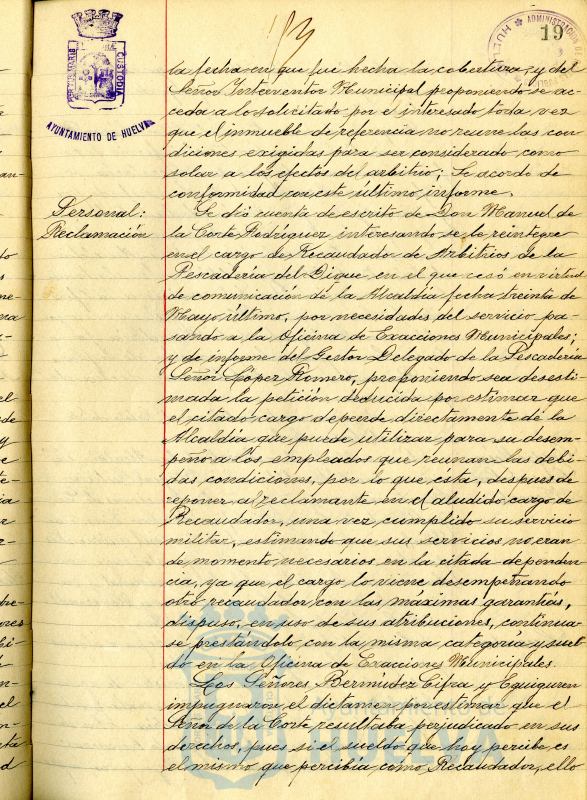 19
ADMINISTRACION DE
CUSTODIA
AYUNTAMIENTO DE HUELVA
la fecha en que fue hecha la cobertura, y del
Señor Interventor Municipal proponiendo se ac-
ceda a lo solicitado por el interesado toda vez
que el inmueble de referencia no reune las con-
diciones exigidas para ser considerado como
solar a los efectos del arbitrio; Se acordo de
conformidad con este último informe.
Personal:
Reclamación
Se dió cuenta de escrito de Don Manuel de
la Corte Rodríguez interesando se le reintegre
en el cargo de Recaudador de Arbitrios de la
Pescadería del Dique, en el que cesó en virtud
de comunicación de la Alcaldía fecha treinta de
Mayo último, por necesidades del servicio pa-
sando a la Oficina de Exacciones Municipales;
y de informe del Gestor Delegado de la Pescadería
Señor López Romero, proponiendo sea desesti-
mada la petición deducida por estimar que
el citado cargo depende directamente de la
Alcaldía que puede utilizar para su desem-
peño a los empleados que reunan las debi-
das condiciones, por lo que ésta, despues de
reponer al reclamante en el aludido cargo de
Recaudador, una vez cumplido su servicio
militar, estimando que sus servicios no eran
de momento, necesarios en la citada dependen-
cia, ya que el cargo lo viene desempeñando
otro recaudador con las máximas garantías,
dispuso, en uso de sus atribuciones, continua-
se prestándolo con la misma categoría y suel-
do en la Oficina de Exacciones Municipales.
Los Señores Bermúdez Cifra y Eguiguren
impugnaron el dictamen por estimar que el
Señor de la Corte resultaba perjudicado en sus
derechos, pues si el sueldo que hoy percibe es
el mismo que percibía como Recaudador, ello
HUELVA